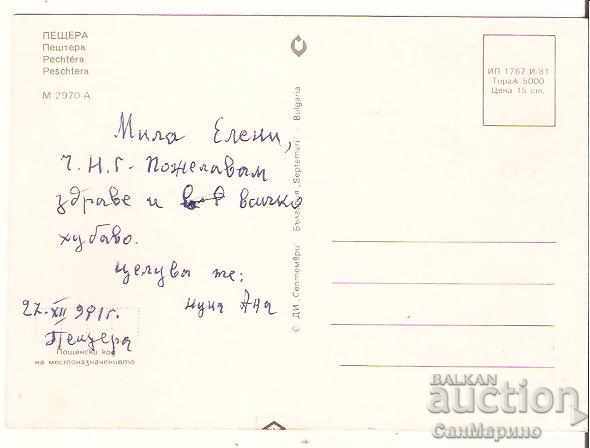 ПЕЩЕРА
Пештера
Pechtéra
Peschtera
М 2970-А
Мила Елени,
Ч.Н.Г. Пожелавам
здраве и всичко
хубаво.
целува те:
Ана
27. XII 991г.
Пещера
Пощенски код
на местоназначението
© ДИ „Септември" България „Septemvri" - Bulgaria
ИП 1767 И/81
Тираж 5000
Цена 15 ст.
BALKAN
auction
СанМарино